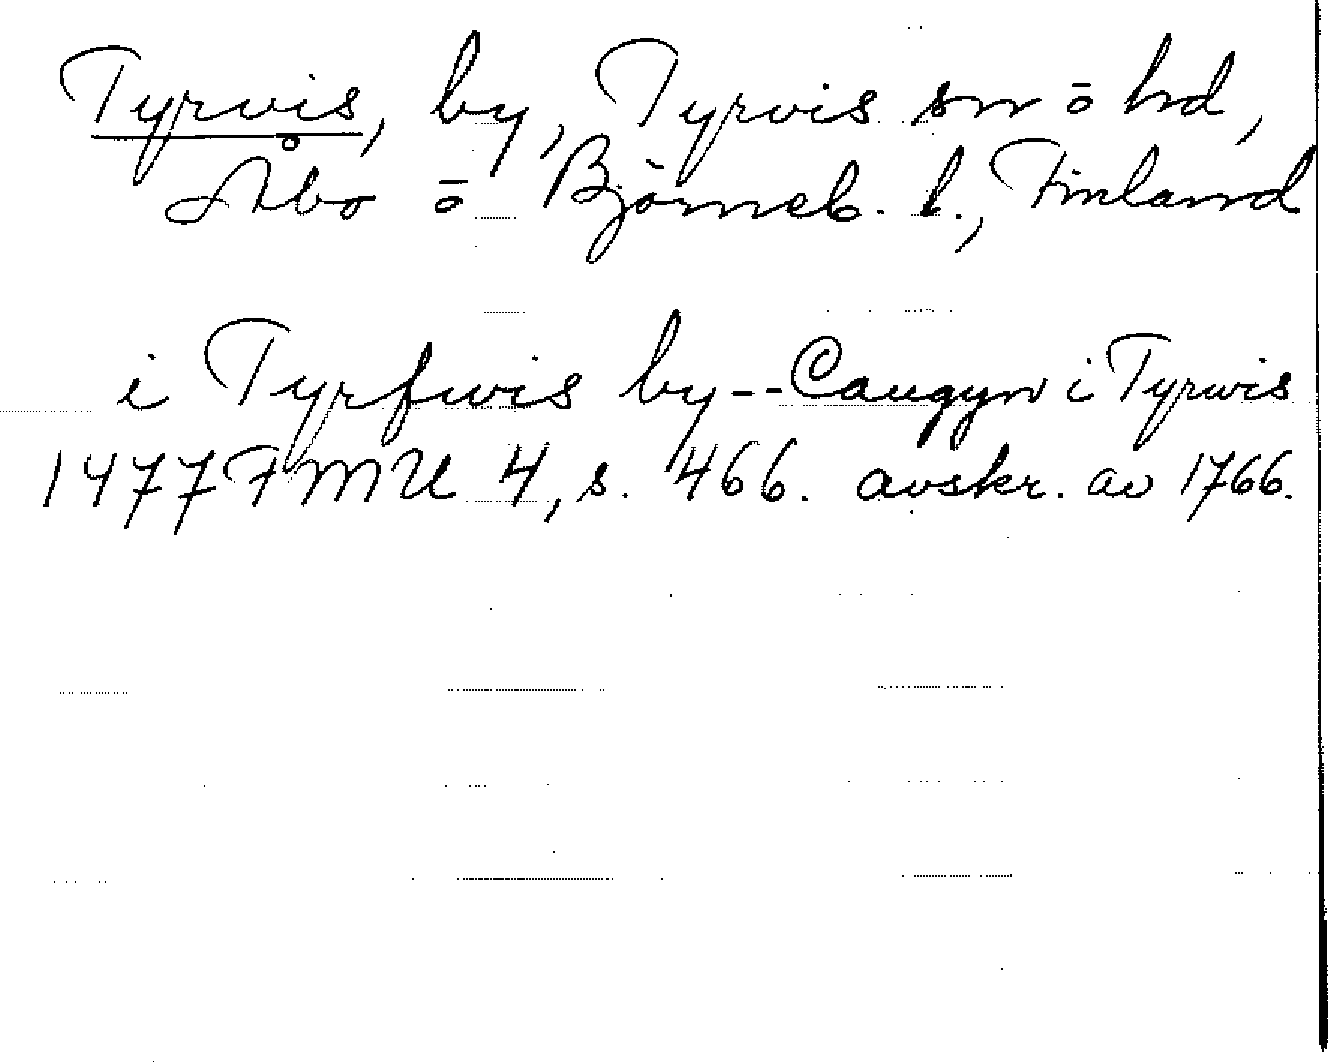 Tyrvis, by, Tyrvis sn ō hd,
Åbo ō Björneb. l., Finland
i Tyrfwis by -- Caugyn i Tyrwis
1477 FMU 4, s. 466. avskr. av 1766.